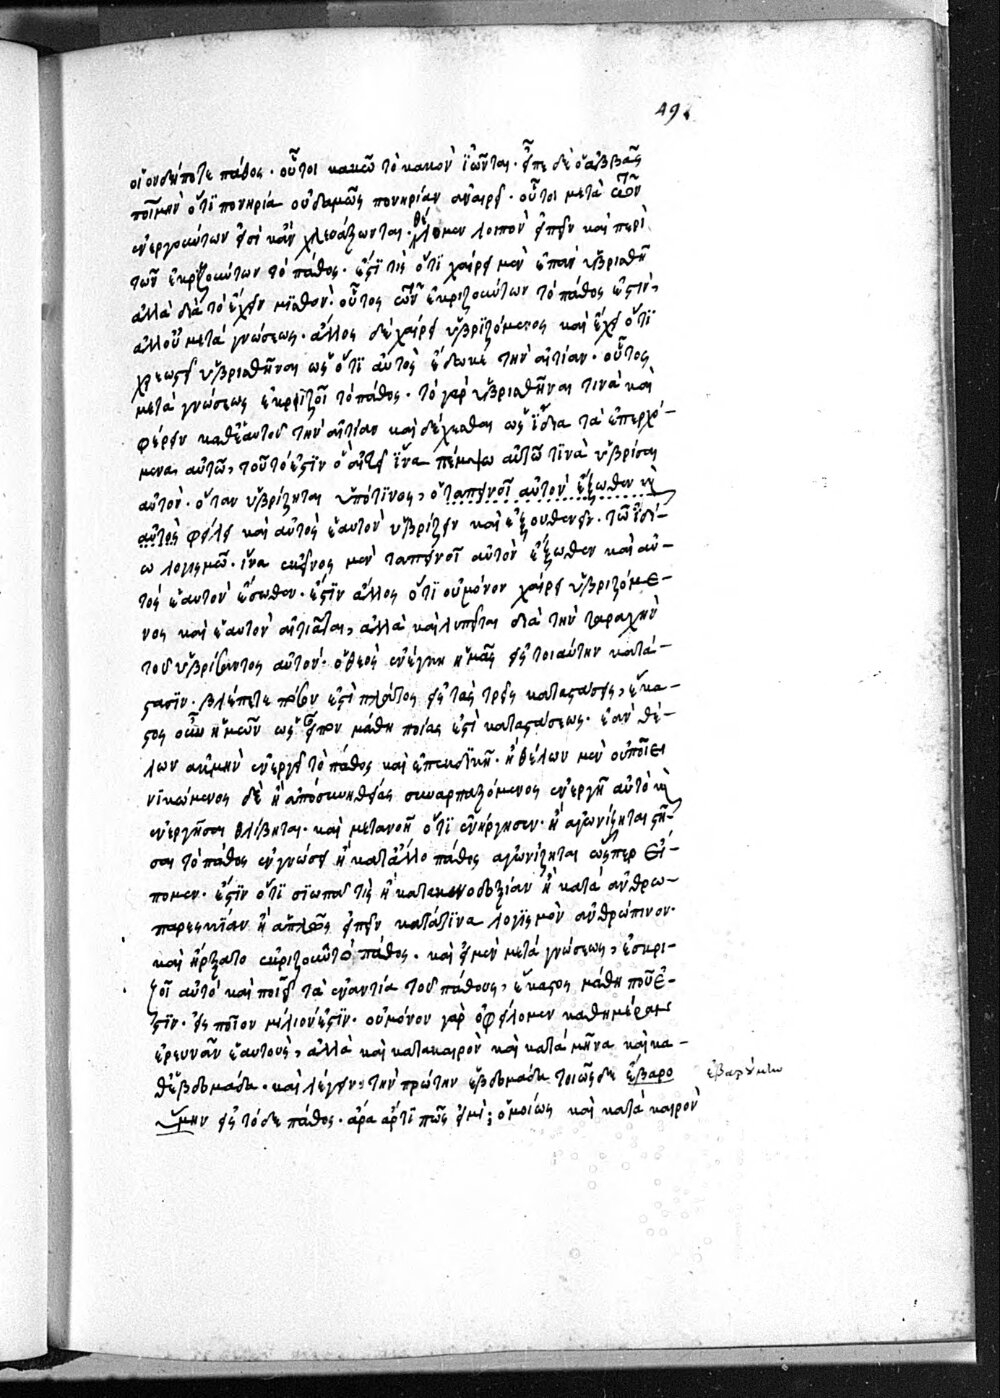 49
οἱονδήποτε πάθος· οὗτοι κακῶ τὸ κακὸν ἰῶνται· εἶπε δὲ ὁ ἀββᾶς
ποϊμὴν ὅτϊ πονηρία οὐδαμῶς πονηρίαν ἀναιρεῖ· οὗτοι μετὰ τῶν
ἐνεργούντων εἰσὶ κἂν χλευάζωνται· θέλωμεν λοιπὸν εἰπεῖν καὶ περὶ
τῶν ἐκριζούντων τὸ πάθος· ἔστϊ τις ὅτϊ χαίρει μὲν ἐπὰν ὑβρισθῆ
ἀλλὰ διὰ τὸ ἔχειν μϊσθὸν· οὗτος τῶν ἐκριζούντων τὸ πάθος ἐστὶν,
ἀλλ' οὐ μετὰ γνώσεως· ἄλλος δὲ χαίρει ὑβρϊζόμενος καὶ ἔχει ὅτϊ
χρεωστεῖ ὑβρισθῆναι ὡς ὅτϊ αὐτὸς ἔδωκε τὴν αἰτίαν· οὗτος
μετὰ γνώσεως ἐκριζοῖ τὸ πάθος· τὸ γὰρ ὑβρισθῆναι τινὰ καὶ
φέρειν καθ' ἑαυτοῦ τὴν αἰτίαν καὶ δέχεσθαι ὡς ἴδια τὰ ἐπερχό-
μενα αὐτῶ, τοῦτό ἐστϊν ὃ αἰτεῖ ἵνα πέμψω αὐτῶ τϊνὰ ὑβρίσαι
αὐτόν· ὅταν ὑβρίζηται ὑπό τϊνος, ὃ ταπεινοῖ αὐτὸν ἔξωθεν καὶ
αὐτὸς φείλει καὶ αὐτὸς ἑαυτὸν ὑβρίζειν καὶ ἐξουθενεῖν· τῶ ἰδί-
ω λογισμῶ· ἵνα ἐκεῖνος μὲν ταπεινοῖ αὐτὸν ἔξωθεν καὶ αὐ-
τὸς ἑαυτὸν ἔσωθεν· ἔστϊν ἄλλος ὅτϊ οὐ μόνον χαίρει ὑβριζόμε-
νος καὶ ἑαυτὸν αἰτιᾶται, ἀλλὰ καὶ λυπεῖται διὰ τὴν ταραχὴν
τοῦ ὑβρίσαντος αὐτόν· ὁ θεὸς ἐνέγκη ἡμᾶς εἰς τοιαύτην κατά-
στασϊν· βλέπετε πόσον ἐστὶ πλάτος εἰς τὰς τρεῖς καταστάσεις, ἕκα-
στος οὖν ἡμῶν ὡς εἶπον μάθη ποίας ἐστὶ καταστάσεως· ἐὰν θέ-
λων ἀκμὴν ἐνεργεῖ τὸ πάθος καὶ ἐπεκδικῆ· ἢ θέλων μὲν οὐ ποιεῖ
νϊκώμενος δὲ ἢ ἀπὸ συνηθείας συναρπαζόμενος ἐνεργῆ αὐτὸ καὶ
ἐνεργῆσαι θλίβηται· καὶ μετανοῆ ὅτϊ ἐνήργησεν· ἢ ἀγωνίζηται στῆ-
σαι τὸ πάθος ἐν γνώσει ἢ κατ' ἄλλο πάθος ἀγωνίζηται ὥσπερ εἴ-
πομεν· ἔστϊν ὅτϊ σϊωπᾶ τὶς ἢ κατὰ κενοδοξίαν ἢ κατὰ ἀνθρω-
παρεσκϊαν ἢ ἁπλῶς εἰπεῖν κατά τϊνα λογϊσμὸν ἀνθρώπινον·
καὶ ἤρξατο ἐκριζοῦν τὸ πάθος· καὶ εἰ μὲν μετὰ γνώσεως, ἐκρι-
ζοῖ αὐτὸ καὶ ποιεῖ τὰ ἐναντία τοῦ πάθους, ἕκαστος μάθη ποῦ ἐ-
στϊν· εἰς ποῖον μίλιον ἐστϊν· οὐ μόνον γὰρ ὀφείλομεν καθημέραν
ἐρευνᾶν ἑαυτοὺς, ἀλλὰ καὶ κατὰ καιρὸν καὶ κατὰ μῆνα καὶ κα-
θ' ἑβδομάδα· καὶ λέγειν, τὴν πρώτην ἑβδομάδα τοιῶς δε ἐβαρο
ύμην εἰς τόδε πάθος· ἄρα ἄρτϊ πῶς εἰμὶ; ὁμοίως καὶ κατὰ καιρὸν
ἐβαρύνετο